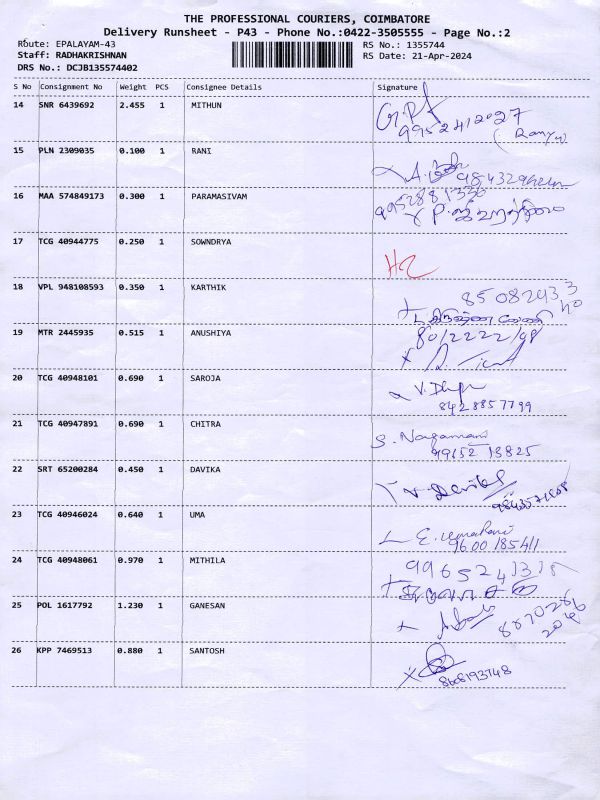 THE PROFESSIONAL COURIERS, COIMBATORE
Delivery Runsheet - P43 - Phone No.:0422-3505555 - Page No.:2
Route: EPALAYAM-43
RS No.: 1355744
Staff: RADHAKRISHNAN
RS Date: 21-Apr-2024
DRS No.: DCJB135574402
S No Consignment No Weight PCS Consignee Details Signature
14 SNR 6439692 2.455 1 MITHUN
9952412027
15 PLN 2309035 0.100 1 RANI
16 MAA 574849173 0.300 1 PARAMASIVAM
9952881330
17 TCG 40944775 0.250 1 SOWNDRYA
18 VPL 948108593 0.350 1 KARTHIK
19 MTR 2445935 0.515 1 ANUSHIYA
20 TCG 40948101 0.690 1 SAROJA
8428857799
21 TCG 40947891 0.690 1 CHITRA
S. Nagamani
99152 13825
22 SRT 65200284 0.450 1 DAVIKA
23 TCG 40946024 0.640 1 UMA
E. Umarani
9600 185411
24 TCG 40948061 0.970 1 MITHILA
25 POL 1617792 1.230 1 GANESAN
26 KPP 7469513 0.880 1 SANTOSH
8608193748